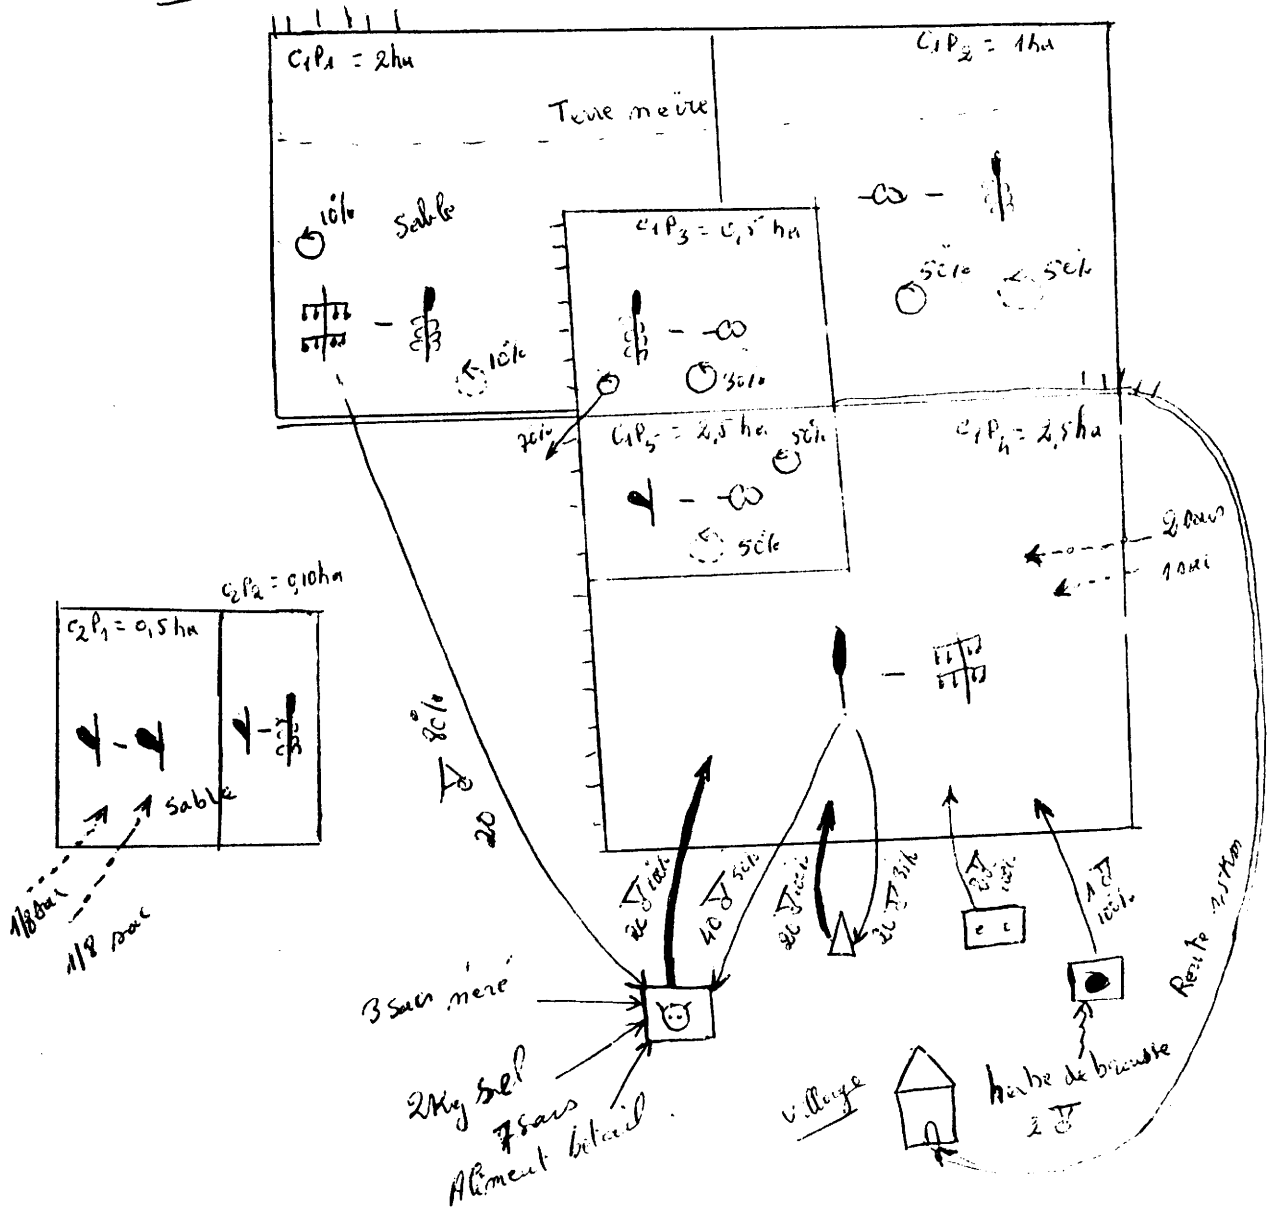 C₁P₁ = 2ha
C₁P₂ = 1ha
Terre noire
10%
Sable
C₁P₃ = 0,5 ha
50%
50%
10%
30%
70%
C₁P₅ = 2,5 ha
50%
C₁P₄ = 2,5ha
50%
2 sacs
C₂P₂ = 0,10ha
C₂P₁ = 0,5ha
80%
20
Sable
1/8 sac
1/8 sac
20 100%
40 50%
20 100%
100%
1
100%
Route 1,5Km
3 sacs néré
2Kg sel
7 sacs
Aliment bétail
village
herbe de brousse
2